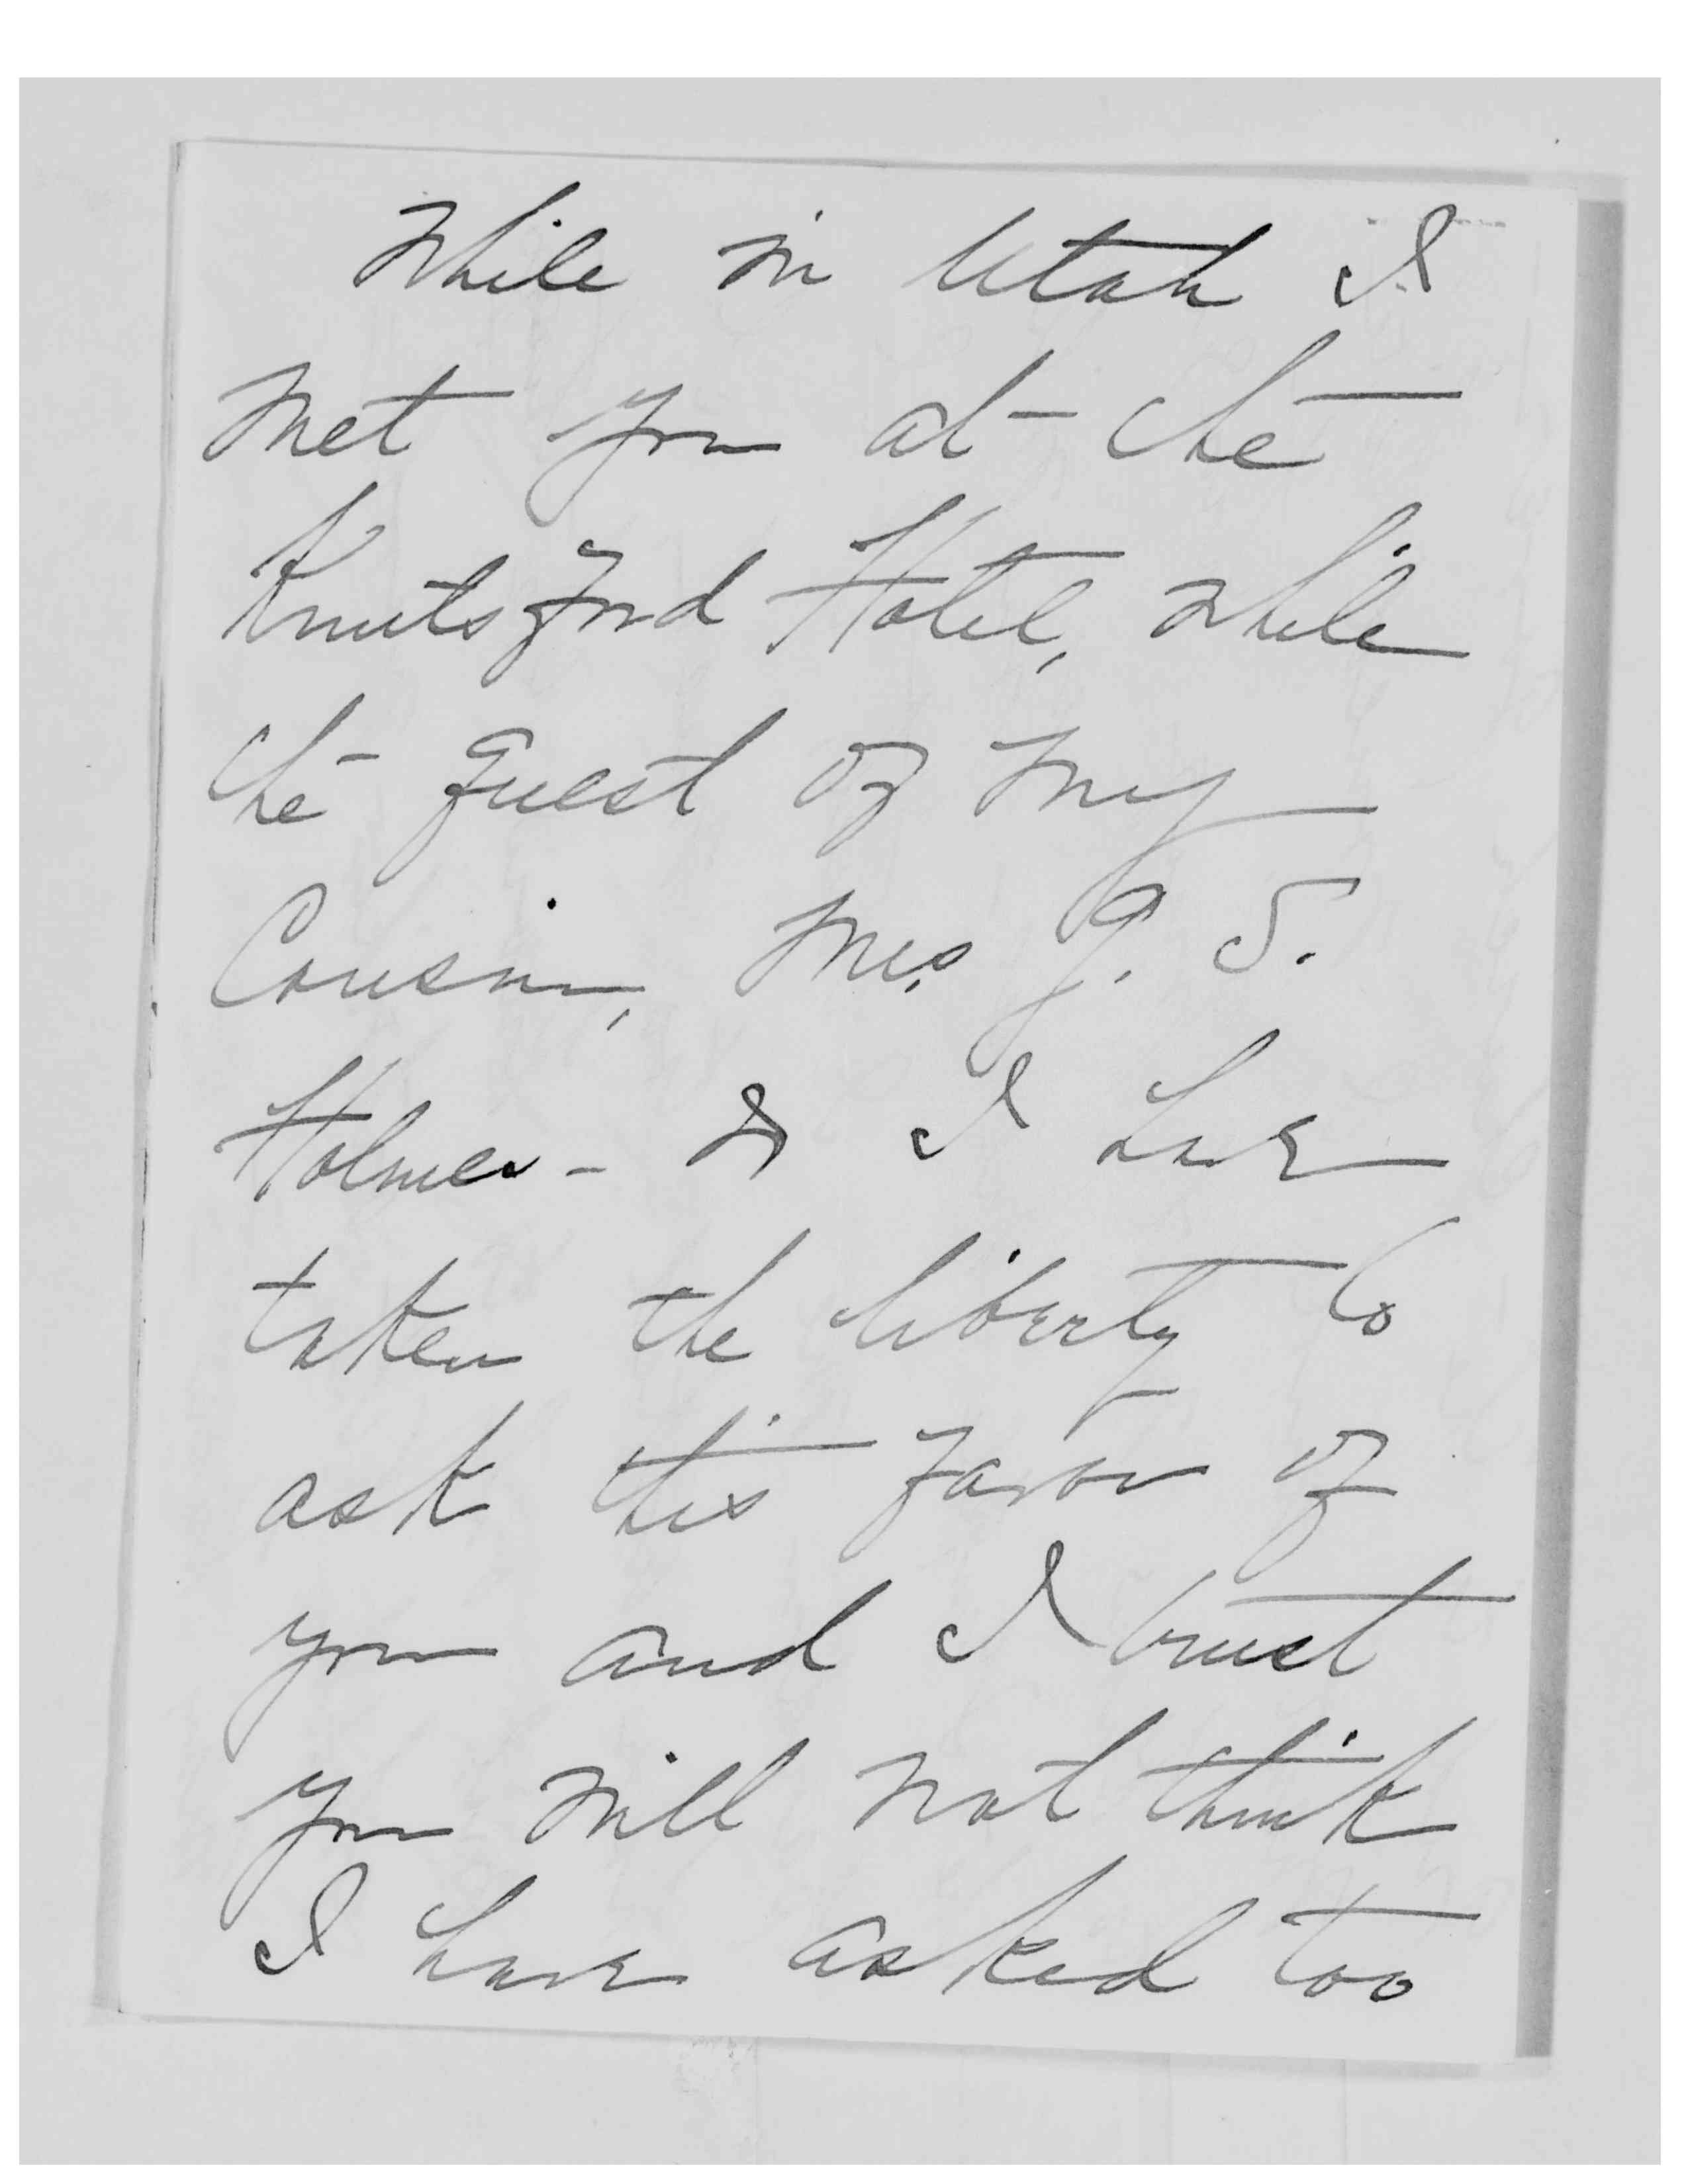 While in Utah I
met you at the
Knutsford Hotel, while
the guest of my
Cousin, Mrs. G. S.
Holmes - & I have
taken the liberty to
ask this favor of
you and I trust
you will not think
I have asked too